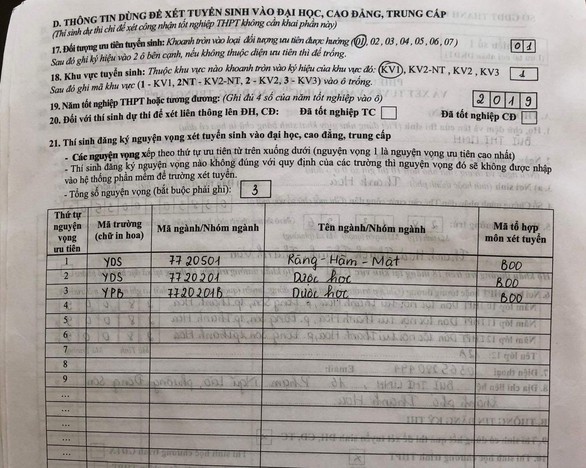 D. THÔNG TIN DÙNG ĐỂ XÉT TUYỂN SINH VÀO ĐẠI HỌC, CAO ĐẲNG, TRUNG CẤP
(Thí sinh dự thi chỉ để xét công nhận tốt nghiệp THPT không cần khai phần này)
17. Đối tượng ưu tiên tuyển sinh: Khoanh tròn vào loại đối tượng ưu tiên được hưởng (01, 02, 03, 04, 05, 06, 07)
Sau đó ghi ký hiệu vào 2 ô bên cạnh, nếu không thuộc diện ưu tiên thì để trống. 0 1
18. Khu vực tuyển sinh: Thuộc khu vực nào khoanh tròn vào ký hiệu của khu vực đó: KV1, KV2-NT, KV2, KV3
Sau đó ghi mã khu vực (1 - KV1, 2NT - KV2-NT, 2 - KV2, 3 - KV3) vào ô trống. 1
19. Năm tốt nghiệp THPT hoặc tương đương: (Ghi đủ 4 số của năm tốt nghiệp vào ô) 2 0 1 9
20. Đối với thí sinh dự thi để xét liên thông lên ĐH, CĐ: Đã tốt nghiệp TC Đã tốt nghiệp CĐ
21. Thí sinh đăng ký nguyện vọng xét tuyển sinh vào đại học, cao đẳng, trung cấp
- Các nguyện vọng xếp theo thứ tự ưu tiên từ trên xuống dưới (nguyện vọng 1 là nguyện vọng ưu tiên cao nhất)
- Thí sinh đăng ký nguyện vọng nào không đúng với quy định của các trường thì nguyện vọng đó sẽ không được nhập
vào hệ thống phần mềm để trường xét tuyển.
- Tổng số nguyện vọng (bắt buộc phải ghi): 3
Thứ tự nguyện vọng ưu tiên Mã trường (chữ in hoa) Mã ngành/Nhóm ngành Tên ngành/Nhóm ngành Mã tổ hợp môn xét tuyển
1 YDS 7720501 Răng - Hàm - Mặt B00
2 YDS 7720201 Dược học B00
3 YPB 7720201B Dược học B00
4
5
6
7
8
9
...
...
...
...